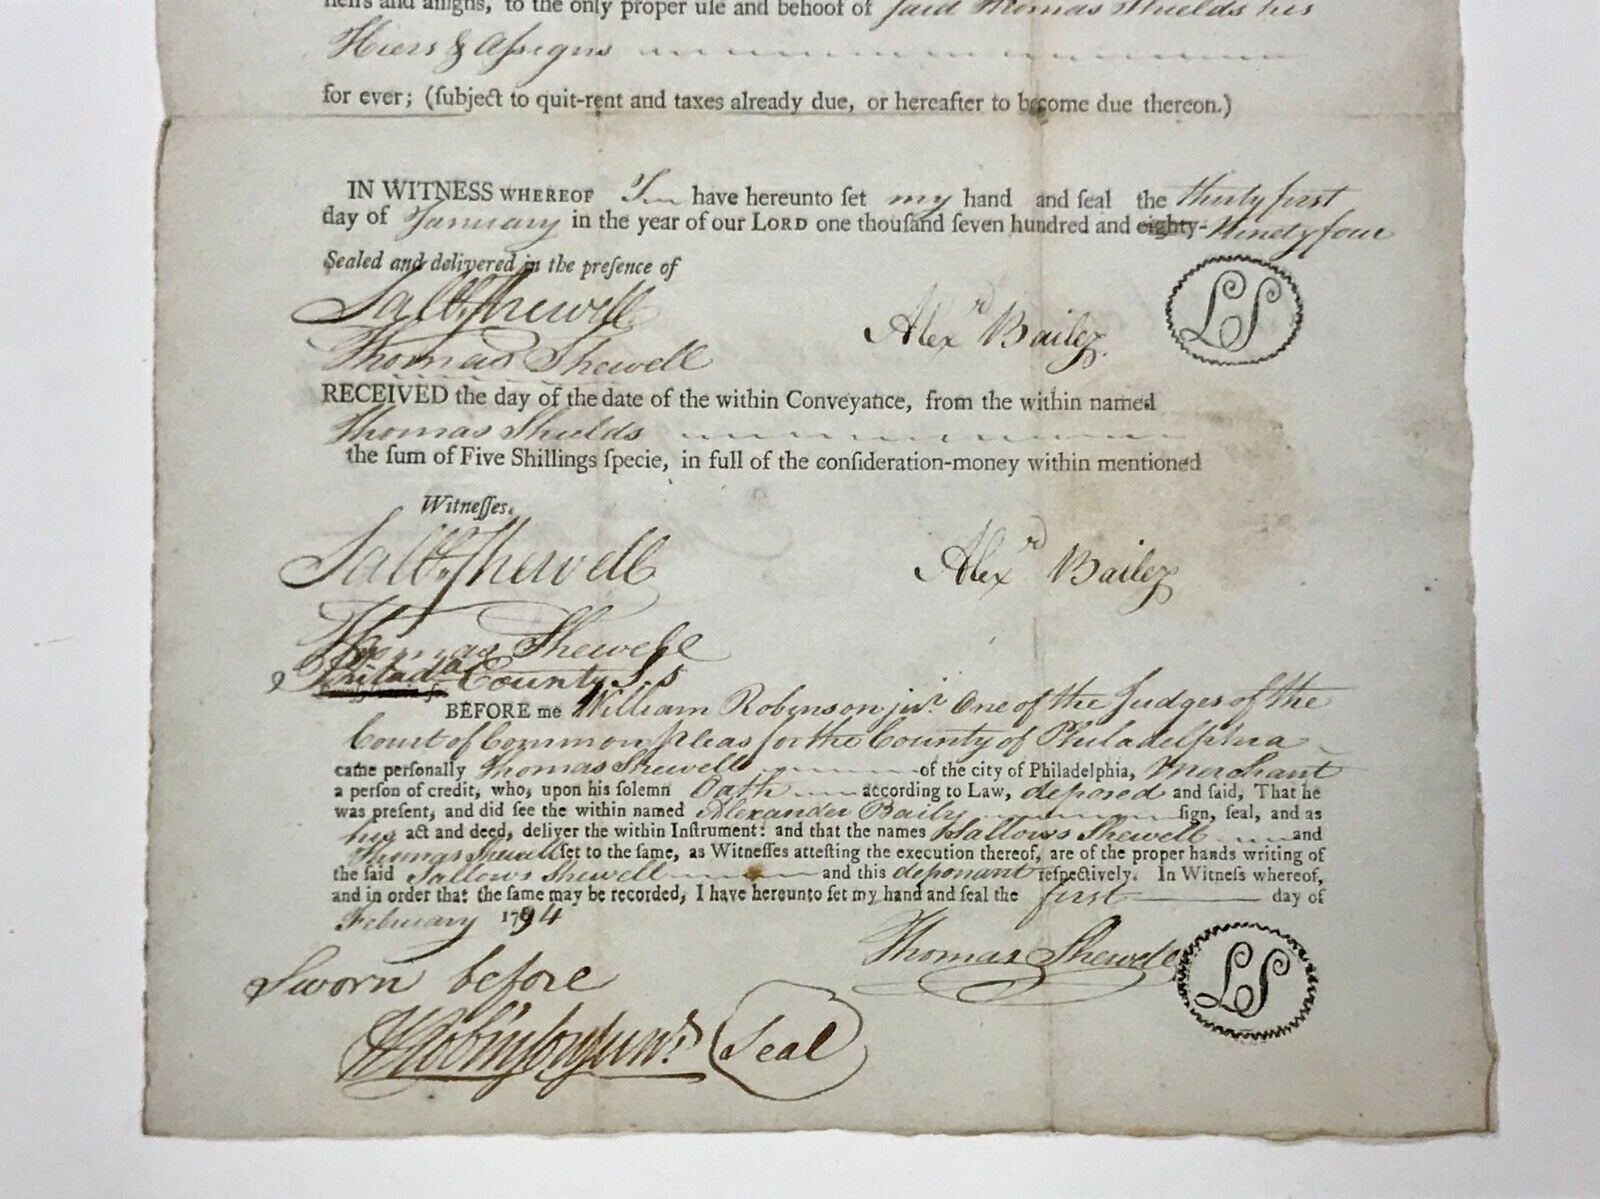 heirs and aſſigns, to the only proper uſe and behoof of said Thomas Shields his
Hiers & Aſsigns
for ever; (ſubject to quit-rent and taxes already due, or hereafter to become due thereon.)
IN WITNESS WHEREOF I have hereunto ſet my hand and ſeal the thirty first
day of January in the year of our LORD one thouſand ſeven hundred and eighty- Ninety four
Sealed and delivered in the preſence of
Sallˢ. Shewell
Thomas Shewell
Alexʳᵈ Bailey
LS
RECEIVED the day of the date of the within Conveyance, from the within named
Thomas Shields
the ſum of Five Shillings ſpecie, in full of the conſideration-money within mentioned
Witneſſes.
Sallˢ. Shewell
Alexʳᵈ Bailey
Thomas Shewell
Philadᵃ County S.s
BEFORE me William Robinson junʳ. One of the Judges of the
Court of Common pleas for the County of Philadelphia
came perſonally Thomas Shewell of the city of Philadelphia, Merchant
a perſon of credit, who, upon his ſolemn Oath according to Law, deposed and ſaid, That he
was preſent, and did ſee the within named Alexander Baily ſign, ſeal, and as
his act and deed, deliver the within Inſtrument: and that the names Sallows Shewell and
Thomas Shewell ſet to the ſame, as Witneſſes atteſting the execution thereof, are of the proper hands writing of
the ſaid Sallows Shewell and this deponant reſpectively. In Witneſs whereof,
and in order that the ſame may be recorded, I have hereunto ſet my hand and ſeal the first day of
February 1794
Thomas Shewell
LS
Sworn before
W Robinson junʳ.
Seal